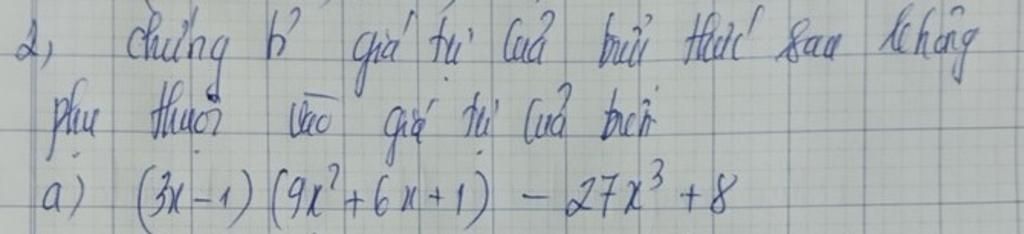 2, chứng tỏ giá trị của biểu thức sau không
phụ thuộc vào giá trị của biến
a) (3x-1) (9x² + 6x + 1) - 27x³ + 8